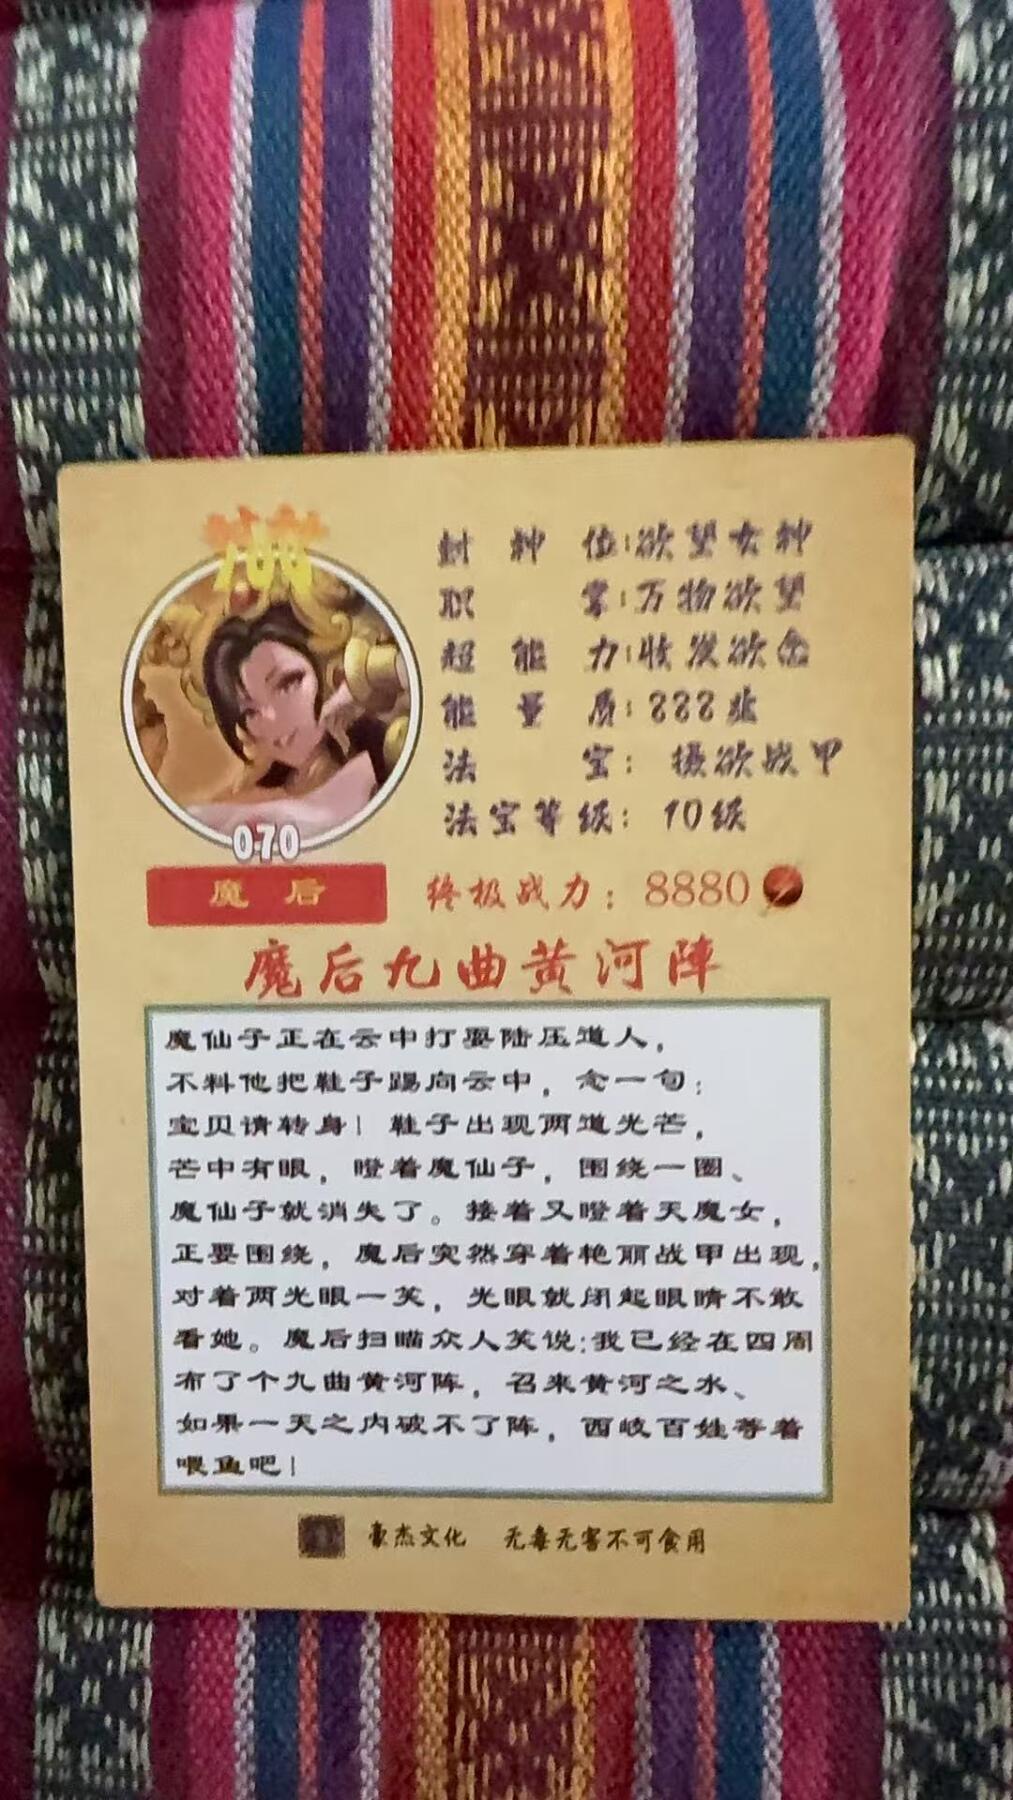 封神位:欲望女神
职掌:万物欲望
超能力:收发欲念
能量质:888兆
法宝: 摄欲战甲
法宝等级: 10级
070
魔后
终极战力: 8880
魔后九曲黄河陣
魔仙子正在云中打耍陆压道人,
不料他把鞋子踢向云中, 念一句:
宝贝请转身! 鞋子出现两道光芒,
芒中有眼, 瞪着魔仙子, 围绕一圈、
魔仙子就消失了。接着又瞪着天魔女,
正要围绕, 魔后突然穿着艳丽战甲出现,
对着两光眼一笑, 光眼就闭起眼睛不敢
看她。魔后扫瞄众人笑说:我已经在四周
布了个九曲黄河阵, 召来黄河之水、
如果一天之内破不了阵, 西岐百姓等着
喂鱼吧!
豪杰文化 无毒无害不可食用